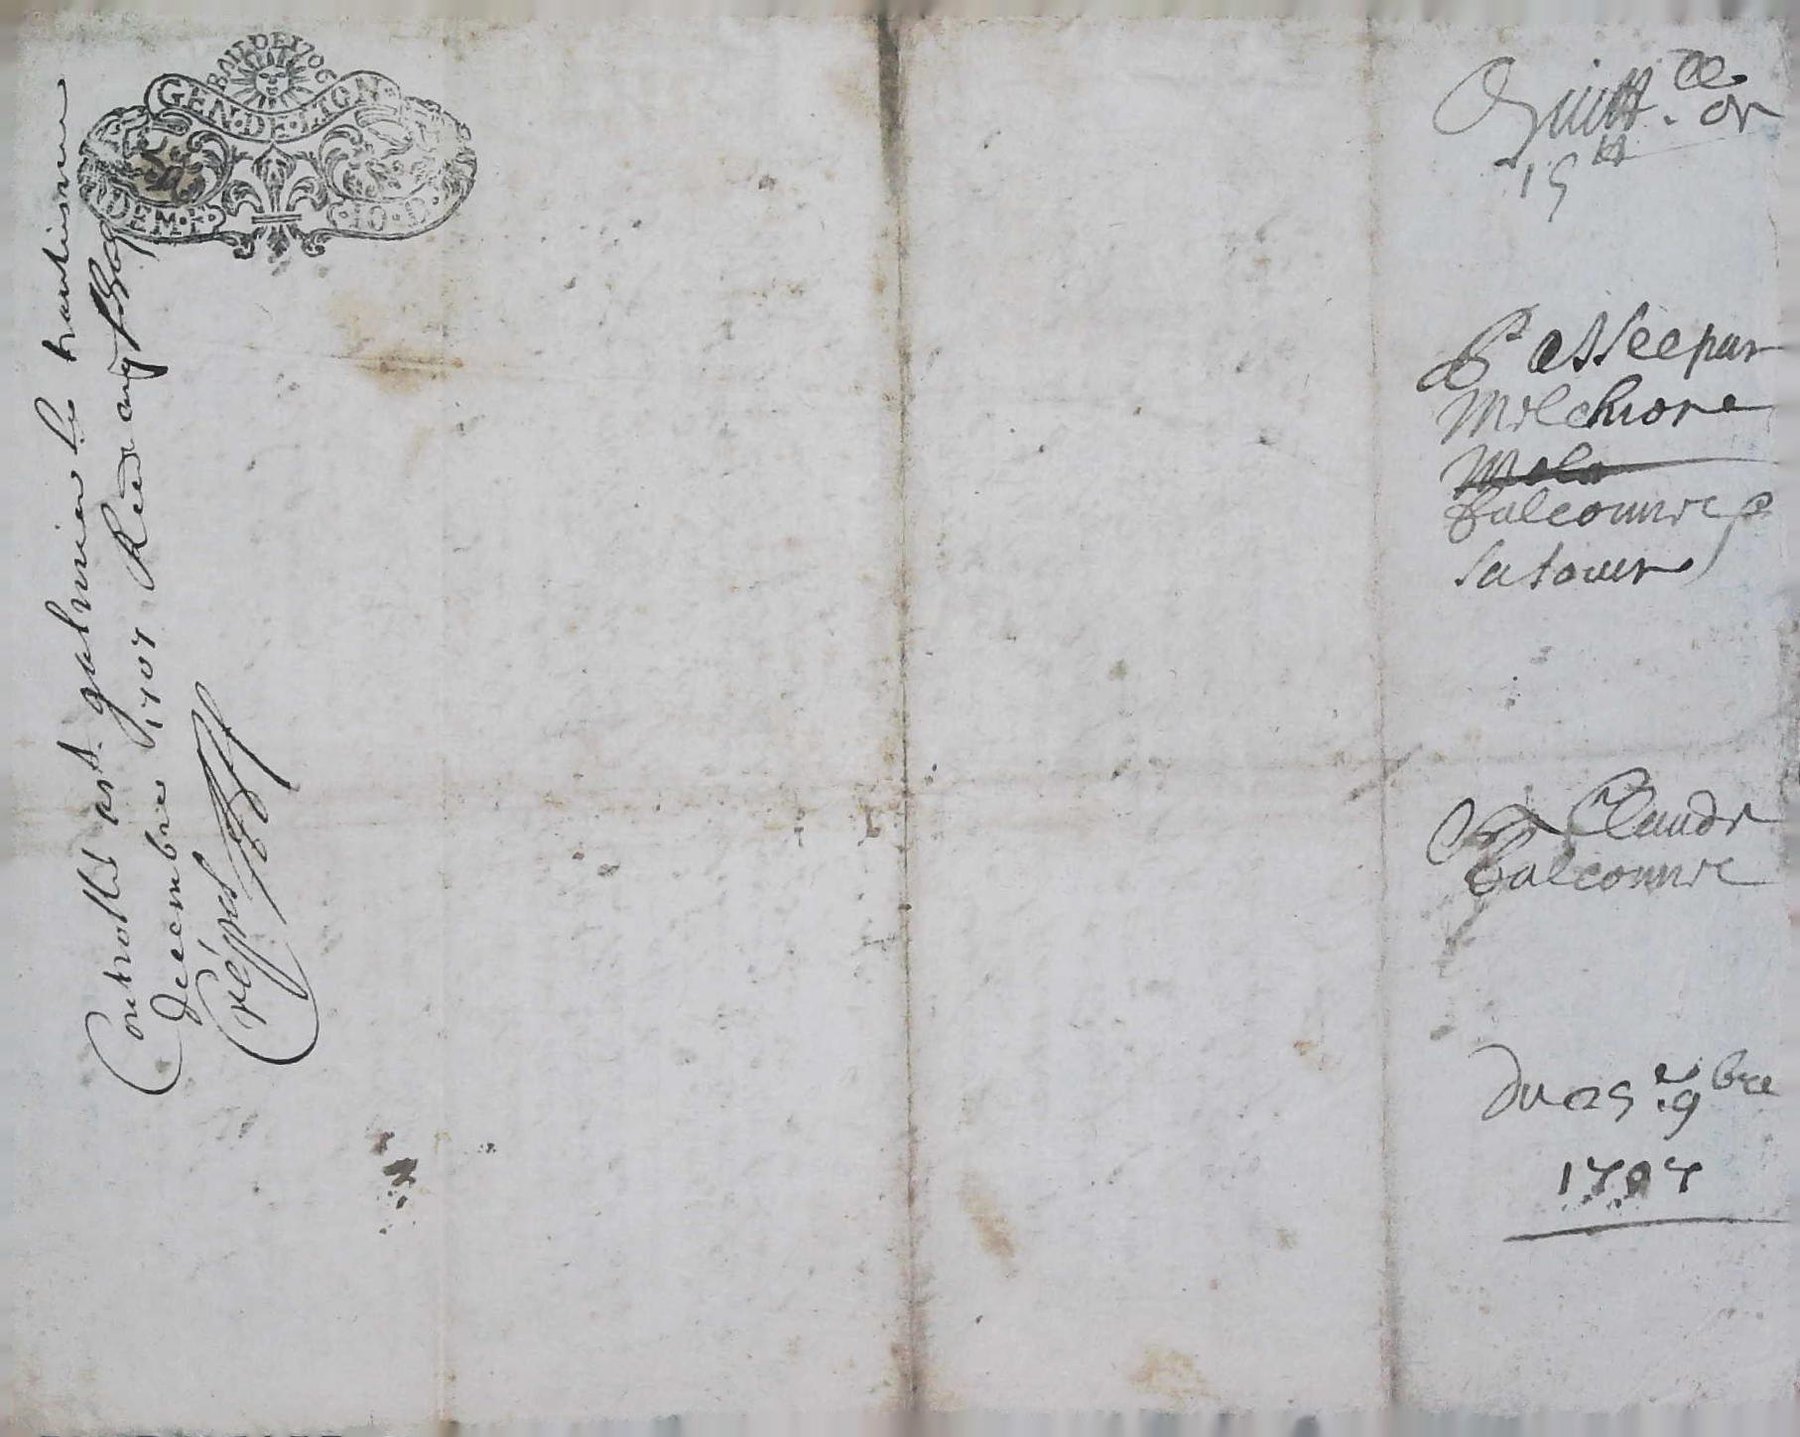 BAIL DE 1706
GEN · DE · LION
DEM · F · 10 · D ·
Controllé a st galmier le trantiesme
decembre 1707 Receu cinq sols
Crépet
Quitt.ce de
15 tt
Passee par
Melchiore
Falconnet
sa soeur
A Claude
Falconnet
du 25e 9bre
1707